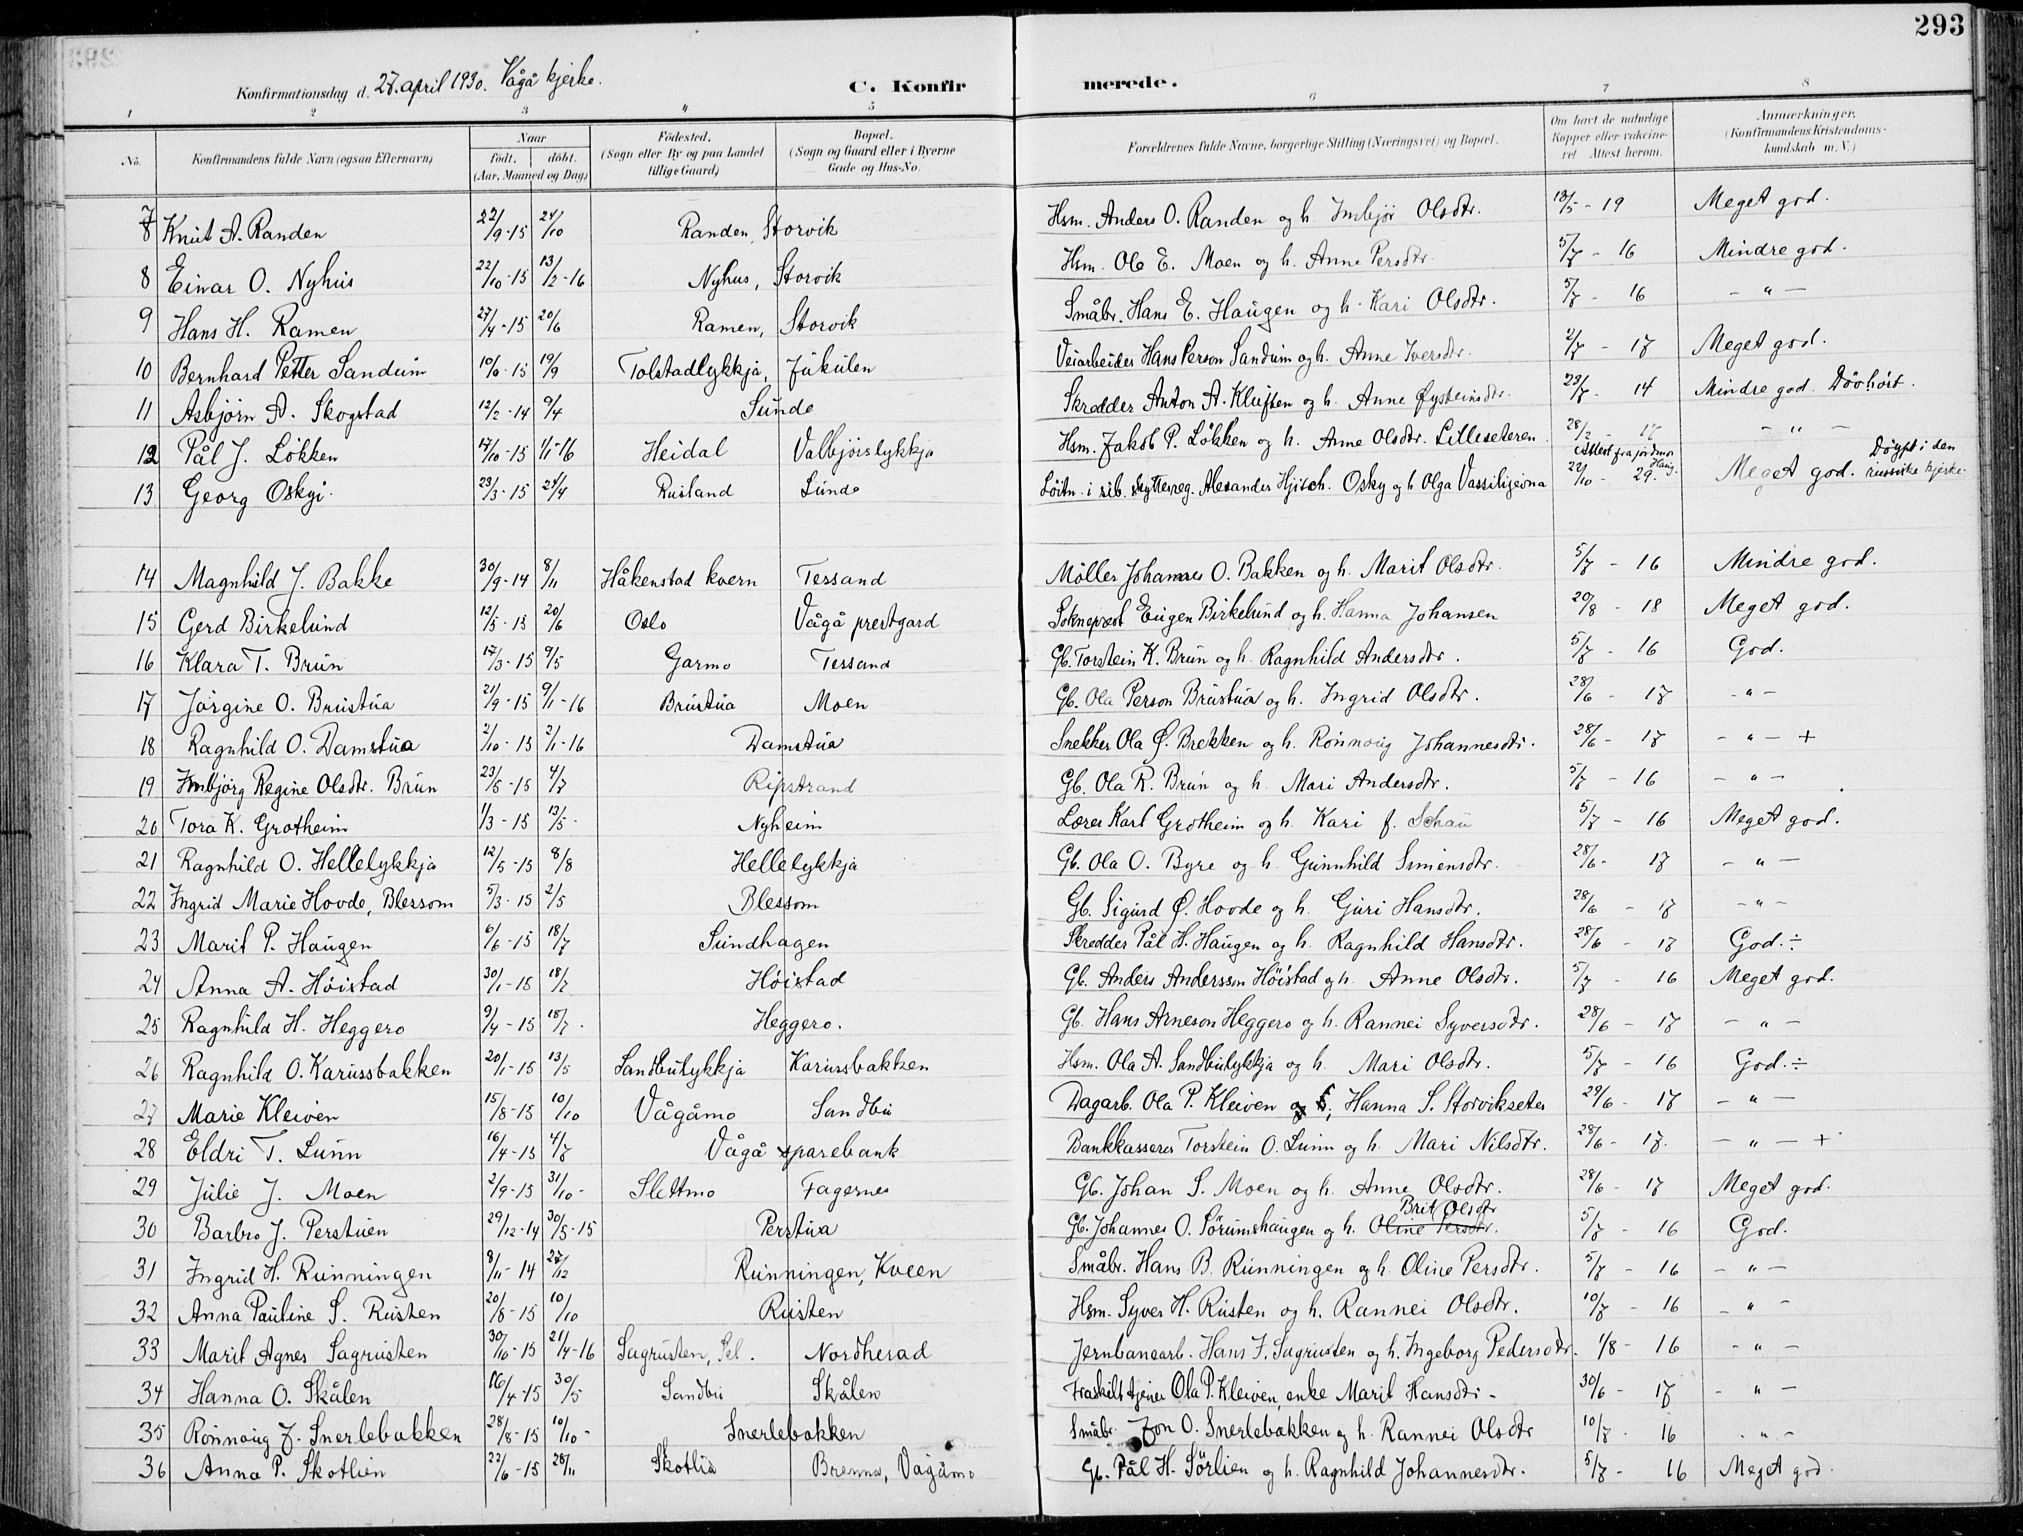 293
Konfirmationsdag d. 27. april 1930. Vågå kjerke.
C. Konfirmerede.
1 2 3 4 5 6 7 8
No. Konfirmandens fulde Navn (ogsaa Efternavn) Naar født, døbt. (Aar, Maaned og Dag) Fødested. (Sogn eller By og paa Landet tillige Gaard) Bopæl. (Sogn og Gaard eller i Byerne Gade og Hus-No. Forældrenes fulde Navne, borgerlige Stilling (Næringsvei) og Bopæl. Om havt de naturlige Kopper eller vaccineret. Attest herom. Anmærkninger. (Konfirmandens Kristendomskundskab m. V.)
7 Knut A. Randen 22/9-15 24/10 Randen, Storvik Hsm. Anders O. Randen og h. Imbjør Olsdtr. 13/5-19 Meget god.
8 Einar O. Nyhus 22/10-15 13/2-16 Nyhus, Storvik Hsm. Ole E. Moen og h. Anne Persdtr. 5/7-16 Mindre god.
9 Hans H. Ramen 27/4-15 20/6 Ramen, Storvik Småbr. Hans E. Haugen og h. Kari Olsdtr. 5/7-16 - " -
10 Bernhard Petter Sandum 10/6-15 19/9 Tolstadlykkja, Jukulen Veiarbeider Hans Person Sandum og h. Anne Iversdtr. 2/7-17 Meget god.
11 Asbjørn A. Skogstad 12/2-14 9/4 Sunde Skredder Anton A. Kluften og h. Anne Øysteinsdtr. 23/7-14 Mindre god. Døvhørt.
12 Pål J. Løkken 17/10-15 1/1-16 Heidal Valbjørslykkja Hsm. Jakob P. Løkken og h. Anne Olsdtr. Lilleseteren 28/2-17 - " -
13 Georg Oskyi 23/3-15 24/4 Rusland Sunde Løitn. i sib. skytterreg. Alexander Hjitsch. Osky og h Olga Vassiligevna Attest fra jordmor Haug. 22/10-29. Meget god. Døypt i den russiske kjerke.
14 Magnhild J. Bakke 30/9-14 8/11 Håkenstad kvern Tessand Møller Johannes O. Bakken og h. Marit Olsdtr. 5/7-16 Mindre god.
15 Gerd Birkelund 12/5-15 20/6 Oslo Vågå prestgard Sokneprest Eugen Birkelund og h. Hanna Johansen 20/8-18 Meget god.
16 Klara T. Brun 17/3-15 9/5 Garmo Tessand Gb. Torstein K. Brun og h. Ragnhild Andersdtr. 5/7-16 God.
17 Jørgine O. Brustua 21/9-15 9/1-16 Brustua Moen Gb. Ola Person Brustua og h. Ingrid Olsdtr. 28/6-17 - " -
18 Ragnhild O. Damstua 2/10-15 2/1-16 Damstua Snekker Ola Ø. Brekken og h. Rønnaug Johannesdtr. 28/6-17 - " - +
19 Imbjørg Regine Olsdtr. Brun 23/5-15 4/7 Ripstrand Gb. Ola R. Brun og h. Mari Andersdtr. 5/7-16 - " -
20 Tora K. Grotheim 1/3-15 13/5 Nyheim Lærer Karl Grotheim og h. Kari f. Schau 5/7-16 Meget god.
21 Ragnhild O. Hellelykkja 12/5-15 8/8 Hellelykkja Gb. Ola O. Byre og h. Gunnhild Simensdtr. 28/6-17 - " -
22 Ingrid Marie Hovde, Blessom 5/3-15 2/5 Blessom Gb. Sigurd Ø. Hovde og h. Guri Hansdtr. 28/6-17 - " -
23 Marit P. Haugen 6/6-15 18/7 Sundhagen Skredder Pål H. Haugen og h. Ragnhild Hansdtr. 28/6-17 God. ÷
24 Anna A. Høistad 30/1-15 18/7 Høistad Gb. Anders Andersson Høistad og h. Anne Olsdtr. 5/7-16 Meget god.
25 Ragnhild H. Heggero 9/4-15 18/7 Heggero. Gb. Hans Arneson Heggero og h. Rannei Syversdtr. 28/6-17 - " -
26 Ragnhild O. Karussbakken 20/1-15 13/5 Sandbulykkja Karussbakken Hsm. Ola A. Sandbulykkja og h. Mari Olsdtr. 5/7-16 God. ÷
27 Marie Kleiven 15/8-15 10/10 Vågåmo Sandbu Dagarb. Ola P. Kleiven og f. Hanna S. Storvikseter 29/6-17 - " -
28 Eldri T. Lunn 16/4-15 4/7 Vågå sparebank Bankkasserer Torstein O. Lunn og h. Mari Nilsdtr. 28/6-17. - " - +
29 Julie J. Moen 2/9-15 31/10 Slettmo Fagernes Gb. Johan S. Moen og h. Anne Olsdtr. 28/6-17 Meget god.
30 Barbro J. Perstuen 29/12-14 30/5-15 Perstua Gb. Johannes O. Sørumshaugen og h. Oline Persdtr. Brit Olsdtr 5/7-16 God.
31 Ingrid H. Runningen 8/11-14 27/12 Runningen, Kveen Småbr. Hans B. Runningen og h. Oline Persdtr. 5/7-16 - " -
32 Anna Pauline S. Rusten 20/8-15 10/10 Rusten Hsm. Syver H. Rusten og h. Rannei Olsdtr. 10/7-16 - " -
33 Marit Agnes Sagrusten 30/10-15 21/4-16 Sagrusten, Sel. Nordherad Jernbanearb. Hans F. Sagrusten og h. Ingeborg Pedersdtr. 1/8-16 - " -
34 Hanna O. Skålen 16/4-15 30/5 Sandbu Skålen Fraskilt tjener Ola P. Kleiven, enke Marit Hansdtr- 30/6-17 - " -
35 Rønnaug J. Snerlebakken 28/8-15 10/10 Snerlebakken Småbr. Jon O. Snerlebakken og h. Rannei Olsdtr 10/7-16 - " -
36 Anna P. Skotlien 22/6-15 28/11 Skotlia Brenna, Vågåmo Gb. Pål H. Sørlien og h. Ragnhild Johannesdtr. 5/7-16 Meget god.